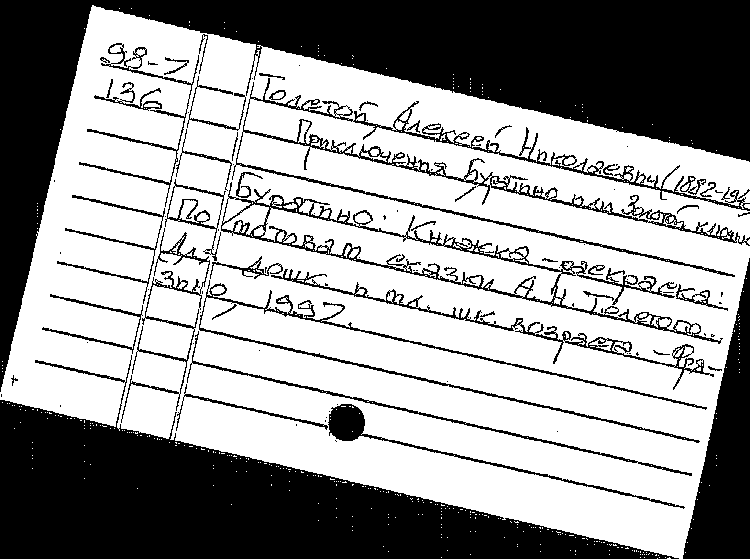 98-7
136
Толстой, Алексей Николаевич (1882-1945
Приключения Буратино или Золотой ключик
Буратино: Книжка-раскраска:
По мотивам сказки А. Н. Толстого...
Для дошк. и мл. шк. возраста. - Фря-
зино, 1997.